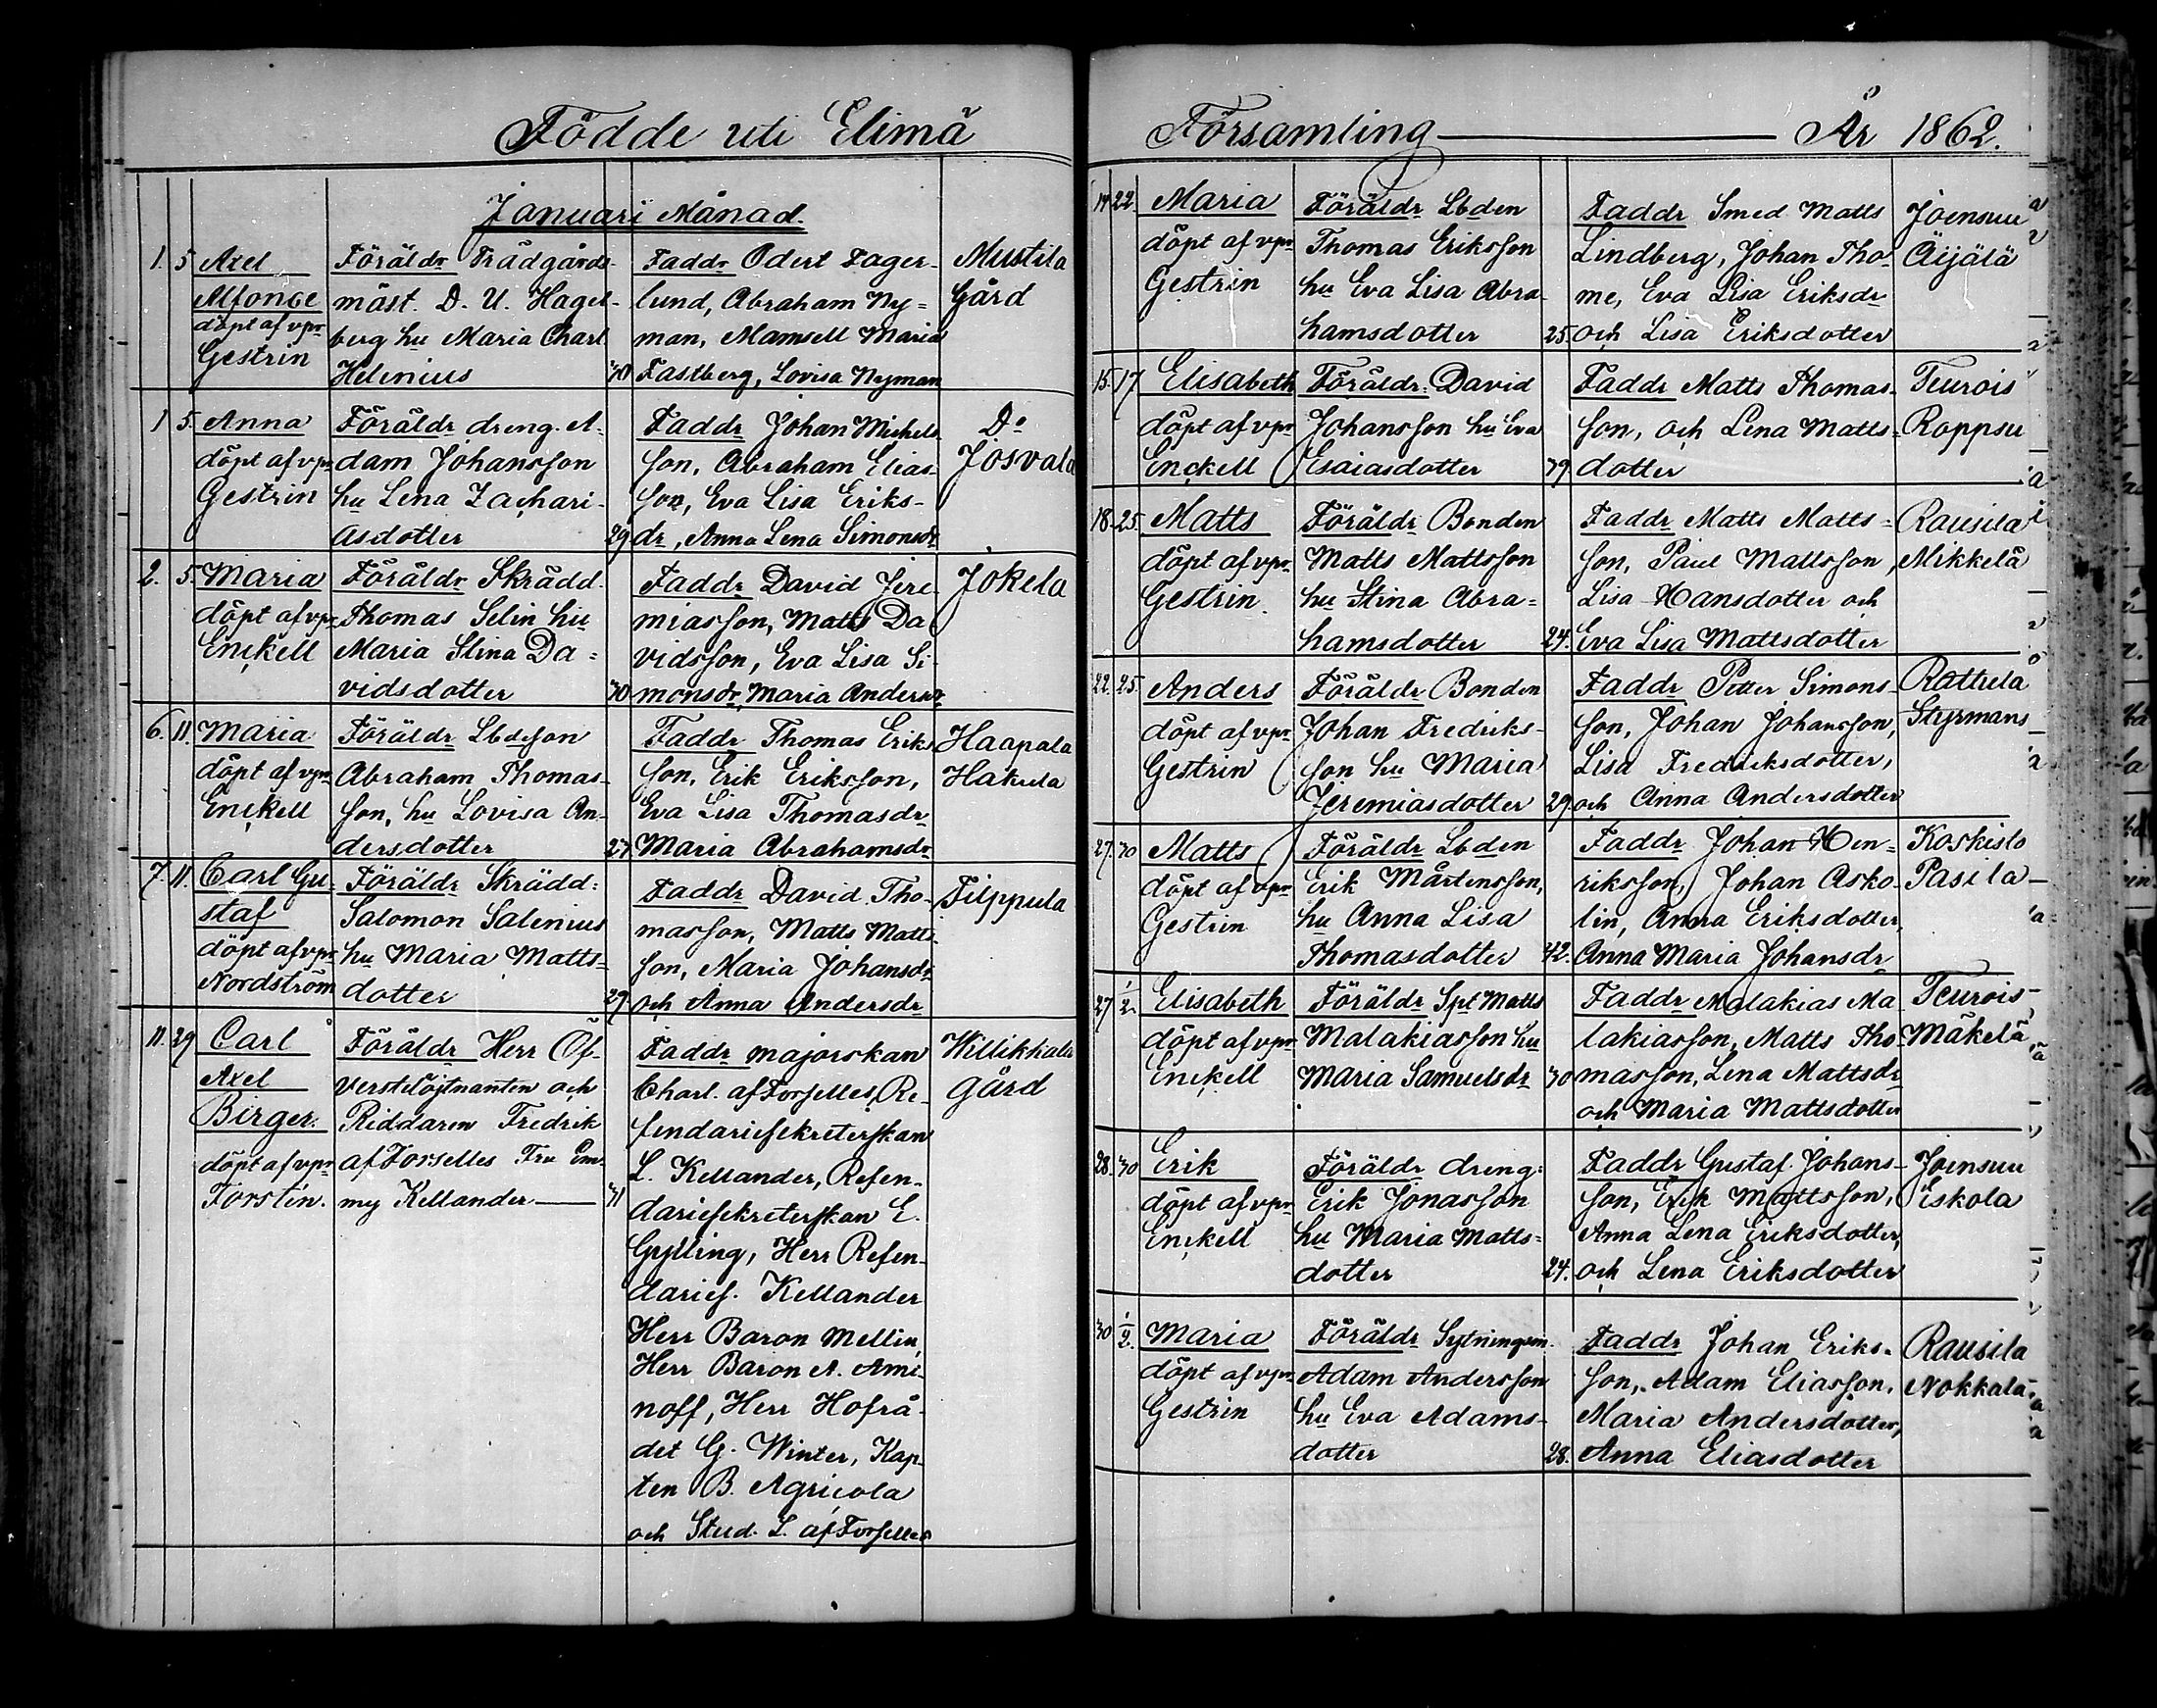 Födde uti Elimä
Januari Månad.
1. 5 Axel
Alfonce
döpt af vpr
Gestrin
Föräldr Trädgårds-
mäst. D. U. Hagel-
berg hu Maria Charl.
Helenius
30
Faddr Odert Fager-
lund, Abraham Ny=
man, Mamsell Maria
Fastberg, Lovisa Nyman
Mustila
Gård
1 5. Anna
döpt af vpr
Gestrin
Föräldr dreng. A-
dam Johansson
hu Lena Zachari-
asdotter
29
Faddr Johan Michels
son, Abraham Elias-
son, Eva Lisa Eriks-
dr, Anna Lena Simonsdr
Do
Josvala
2. 5. Maria
döpt af vpr
Enckell
Föräldr Skrädd.
Thomas Selin hu
Maria Stina Da=
vidsdotter
30
Faddr David Jere-
miasson, Matts Da
vidsson, Eva Lisa Si-
monsdr, Maria Andersdr
Jokela
6. 11. Maria
döpt af vpr
Enckell
Föräldr Lbdeson
Abraham Thomas-
son, hu Lovisa An-
dersdotter
27
Faddr Thomas Eriks
son, Erik Eriksson,
Eva Lisa Thomasdr
Maria Abrahamsdr
Haapala
Hakula
7. 11. Carl Gu-
staf
döpt af vpr
Nordström
Föräldr Skrädd:
Salomon Salenius
hu Maria Matts-
dotter
29
Faddr David Tho-
masson, Matts Matts-
son, Maria Johansdr
och Anna Andersdr
Filppula
11. 29 Carl
Axel
Birger.
döpt af vpr
Forstén.
Föräldr Herr Öf-
verstelöjtnanten och
Riddaren Fredrik
af Forselles Fru Em-
my Kellander
31
Faddr majorskan
Charl. af Forselles, Re-
fendariesekreterskan
L. Kellander, Refen-
dariesekreterskan E.
Gylling, Herr Refen-
daries. Kellander
Herr Baron Mellin,
Herr Baron A. Ami-
noff, Herr Hofrå-
det G. Winter, Kap-
ten B. Agricola
och Stud. L. af Forselles
Willikkala
gård
Församling År 1862.
14 22. Maria
döpt af vpr
Gestrin
Föräldr Lbden
Thomas Eriksson
hu Eva Lisa Abra-
hamsdotter
25.
Faddr Smed Matts
Lindberg, Johan Tho-
me, Eva Lisa Eriksdr
och Lisa Eriksdotter
Joensuu
Äijälä
15. 17 Elisabeth
döpt af vpr
Enckell
Föräldr: David
Johansson hu Eva
Esaiasdotter
39.
Faddr Matts Thomas-
son, och Lena Matts-
dotter
Teurois
Roppsu
18. 25. Matts
döpt af vpr.
Gestrin.
Föräldr Bonden
Matts Mattsson
hu Stina Abra=
hamsdotter
24.
Faddr Matts Matts=
son, Paul Mattsson,
Lisa Hansdotter och
Eva Lisa Mattsdotter
Rausila
Mikkelä
22. 25. Anders
döpt af vpr
Gestrin
Föräldr Bonden
Johan Fredriks-
son hu Maria
Jeremiasdotter
29.
Faddr Petter Simons-
son, Johan Johansson,
Lisa Fredriksdotter,
och Anna Andersdotter
Rattula
Styrmans
27. 30 Matts
döpt af vpr
Gestrin
Föräldr Lbden
Erik Mårtensson,
hu Anna Lisa
Thomasdotter
42.
Faddr Johan Hen=
riksson, Johan Asko-
lin, Anna Eriksdotter,
Anna Maria Johansdr
Koskislo
Pasila
27 1/2. Elisabeth
döpt af vpr
Enckell
Föräldr Spt Matts
Malakiasson hu
Maria Samuelsdr
30
Faddr Malakias Ma-
lakiasson, Matts Tho-
masson, Lena Mattsdr
och Maria Mattsdotter
Teurois
Mäkelä
28. 30 Erik
döpt af vpr
Enckell
Föräldr dreng:
Erik Jonasson
hu Maria Matts=
dotter
24.
Faddr Gustaf Johans-
son, Erik Mattsson,
Anna Lena Eriksdotter,
och Lena Eriksdotter
Joensuu
Eskola
30 1/2. Maria
döpt af vpr
Gestrin
Föräldr Sytningsm.
Adam Andersson
hu Eva Adams-
dotter
28.
Faddr Johan Eriks-
son, Adam Eliasson,
Maria Andersdotter,
Anna Eliasdotter
Rausila
Nokkala